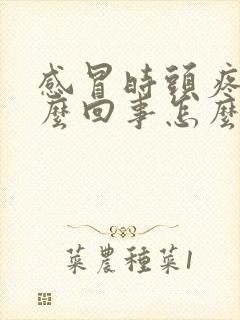 感冒時頭疼
麼回事怎麼
菜農種菜1